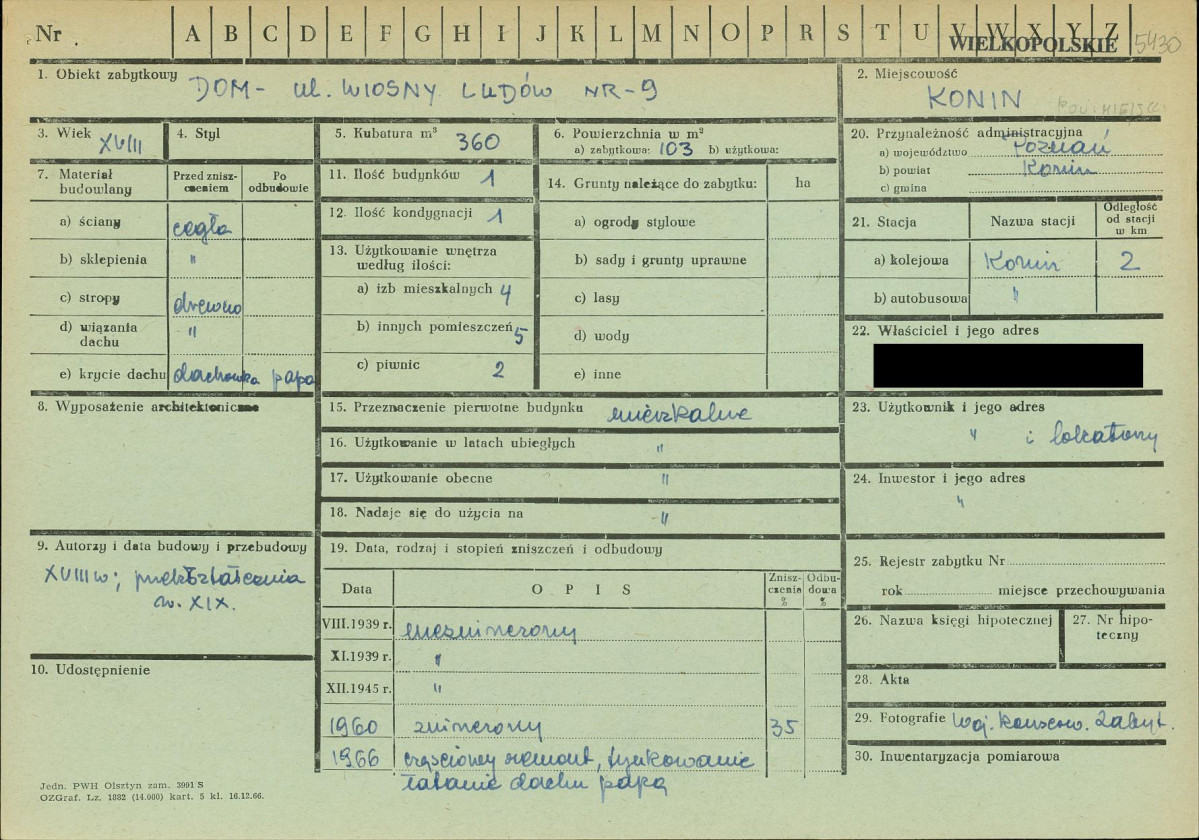 Nr A B C D E F G H I J K L M N O P R S T U V W X Y Z
WIELKOPOLSKIE 5430
1. Obiekt zabytkowy DOM - ul. WIOSNY LUDÓW NR-9
2. Miejscowość
KONIN
3. Wiek XVIII
4. Styl
5. Kubatura m³ 360
6. Powierzchnia w m²
a) zabytkowa: 103 b) użytkowa:
7. Materiał budowlany
Przed zniszczeniem
Po odbudowie
a) ściany cegła
b) sklepienia "
c) stropy drewno
d) wiązania dachu "
e) krycie dachu dachówka papa
11. Ilość budynków 1
12. Ilość kondygnacji 1
13. Użytkowanie wnętrza
według ilości:
a) izb mieszkalnych 4
b) innych pomieszczeń 5
c) piwnic 2
14. Grunty należące do zabytku: ha
a) ogrody stylowe
b) sady i grunty uprawne
c) lasy
d) wody
e) inne
20. Przynależność administracyjna
a) województwo Poznań
b) powiat Konin
c) gmina
21. Stacja
Nazwa stacji
Odległość od stacji w km
a) kolejowa Konin 2
b) autobusowa "
22. Właściciel i jego adres
8. Wyposażenie architektoniczne
15. Przeznaczenie pierwotne budynku mieszkalne
16. Użytkowanie w latach ubiegłych "
17. Użytkowanie obecne "
18. Nadaje się do użycia na -"
23. Użytkownik i jego adres
" i lokatorzy
24. Inwestor i jego adres
"
9. Autorzy i data budowy i przebudowy
XVIII w; przekształcenia
w. XIX.
10. Udostępnienie
19. Data, rodzaj i stopień zniszczeń i odbudowy
Data
OPIS
Zniszczenia %
Odbudowa %
VIII.1939 r. niezniszczony
XI.1939 r. "
XII.1945 r. "
1960 zniszczony 35
1966 częściowy remont, tynkowanie
łatanie dachu papą
25. Rejestr zabytku Nr
rok miejsce przechowywania
26. Nazwa księgi hipotecznej
27. Nr hipoteczny
28. Akta
29. Fotografie Woj. konserw. Zabyt.
30. Inwentaryzacja pomiarowa
Jedn. PWH Olsztyn zam. 3991 S
OZGraf. Lz. 1882 (14.000) kart. 5 kl. 16.12.66.